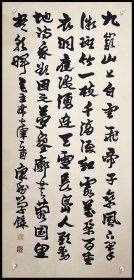 九嶷山上白雲飛帝子乘風下翠
微斑竹一枝千滴淚紅霞萬朵百重
衣洞庭波湧連天雪長島人歌動
地詩我欲因之夢寥廓芙蓉國里
盡朝暉